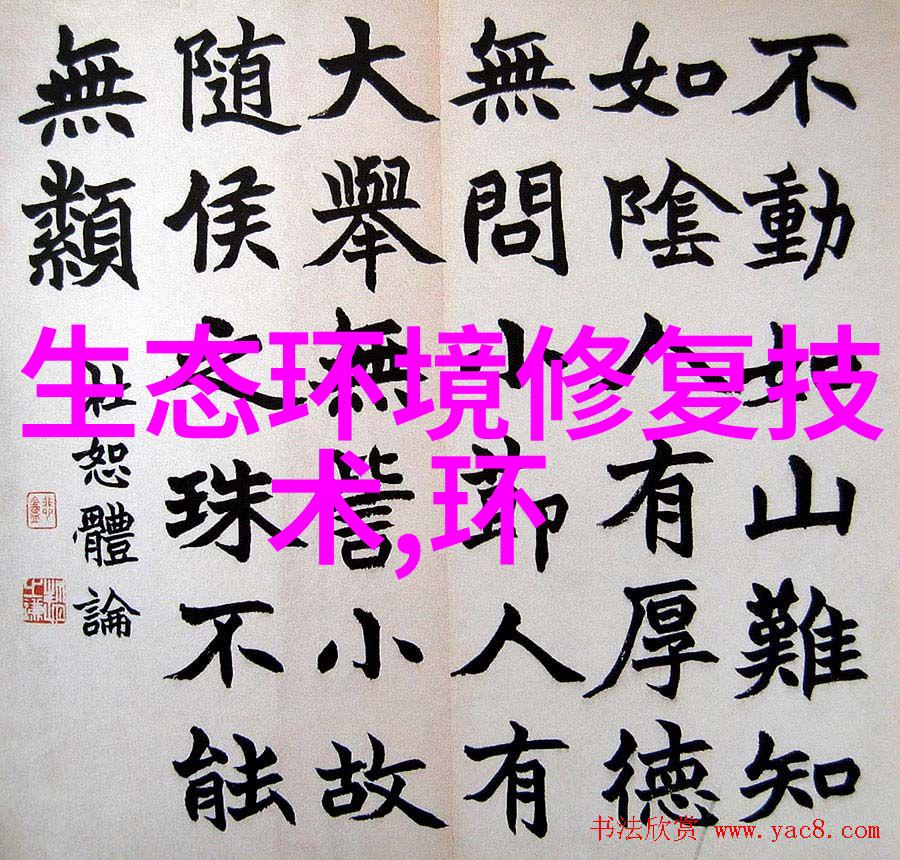 不動如山難知
如陰人有厚德
無問小節人有
大舉無訾小故
隨侯之珠不能
無纇
杜恕體論
生态环境修复技
术,环
书法欣赏 www.yac8.com